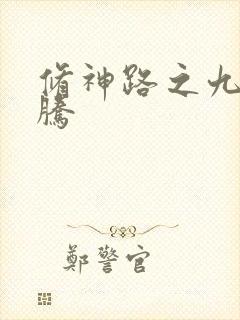 脩神路之九
騰
鄭警官